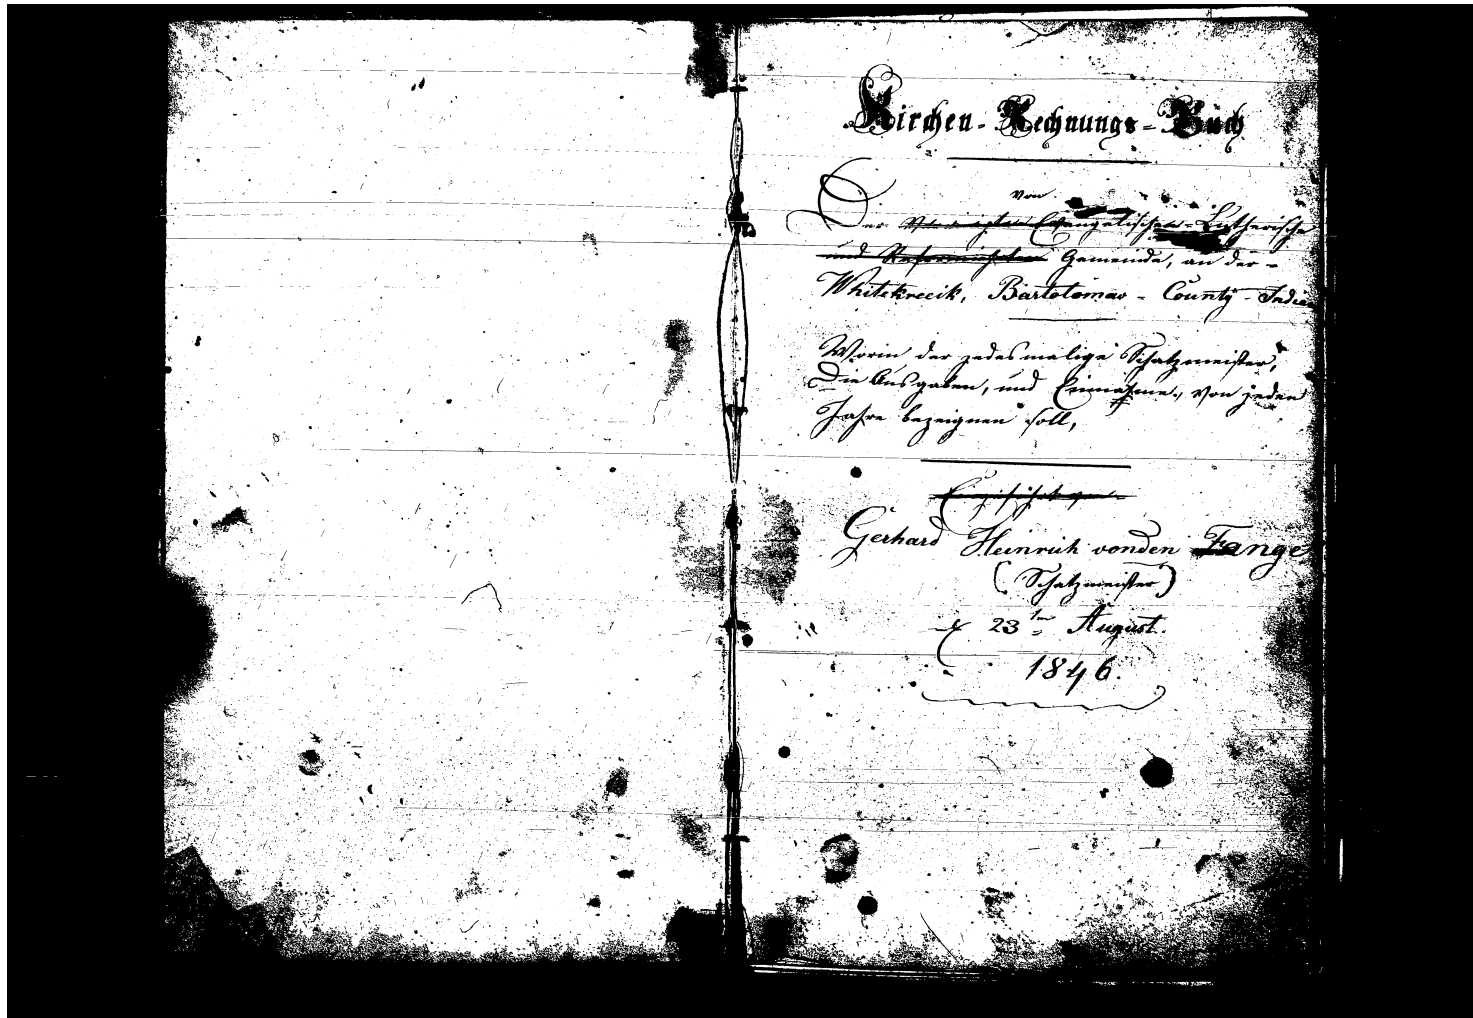 Kirchen-Rechnungs-Buch
von
Der Vereinigten Evangelischen-Lutherische
und Reformirten Gemeinde, an der-
Whitekreeik, Bartolomao - County - Indian
Worin der jedesmalige Schatzmeister,
Die Ausgaben, und Einnahme, von jeden
Jahre bezeignen soll,
Eingeführt von
Gerhard Heinrich vonden Fange
(Schatzmeister)
23 August.
1846.